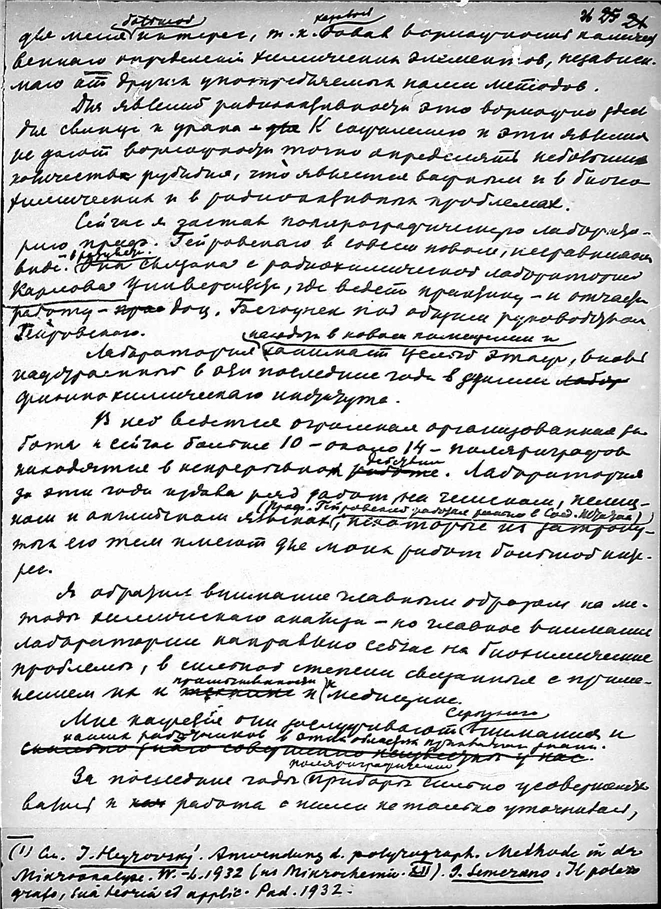 25
большой
для меня интерес, т.к. давая возможность количест
венного определения химических элементов, независи
мого от других употребляемых нами методов.
Для явлений радиоактивности это возможно
для свинца и урана К сожалению и эти явления
не дают возможности точно определять небольшие
количества рубидия, что является важным и в биогео
химических и в радиоактивных проблемах.
Сейчас я застал полярографическую лаборато-
рию проф. Гейровского в совсем новом, несравнимом
виде. Она связана с радиохимической лабораторией
Карлова Университета, где ведет и отчасти
работу доц. Бегоунек под общим руководством
Гейровского.
находясь в новом помещении и
Лаборатория занимает целый этаж, вновь
надстроенный в эти последние годы в здании
физико химического института.
В ней ведется огромная организованная ра
бота и сейчас больше 10 – около 14 – полярографов
действии
находятся в непрерывном работе. Лаборатория
за эти годы издала ряд работ на чешском, немец-
(Проф. Гейровский работал раньше в Соед. Штатах)
ком и английском языках, некоторые из затрону-
тых его тем имеют для моих работ большой инте
рес.
Я обратил внимание главным образом на ме-
тоды химического анализа – но главное внимание
Лаборатории направлено сейчас на биохимические
проблемы, в сильной степени связанные с приме-
промышленности
нением их к технике и к медицине.
серьезного
Мне кажется они заслуживают внимания и
наших работников в этих областях
совершенно у нас.
полярографические
За последние годы приборы сильно усовершенст
вались и работа с ними не только уточнилась,
(1) См. J. Heyrovský. Anwendung d. polarograph. Methode in der
Mikroanalyse. W.-L. 1932 (из Mikrochemie. XII). G. Semerano. Il polaro
grafo, sua teoria ed applic. Pad. 1932.